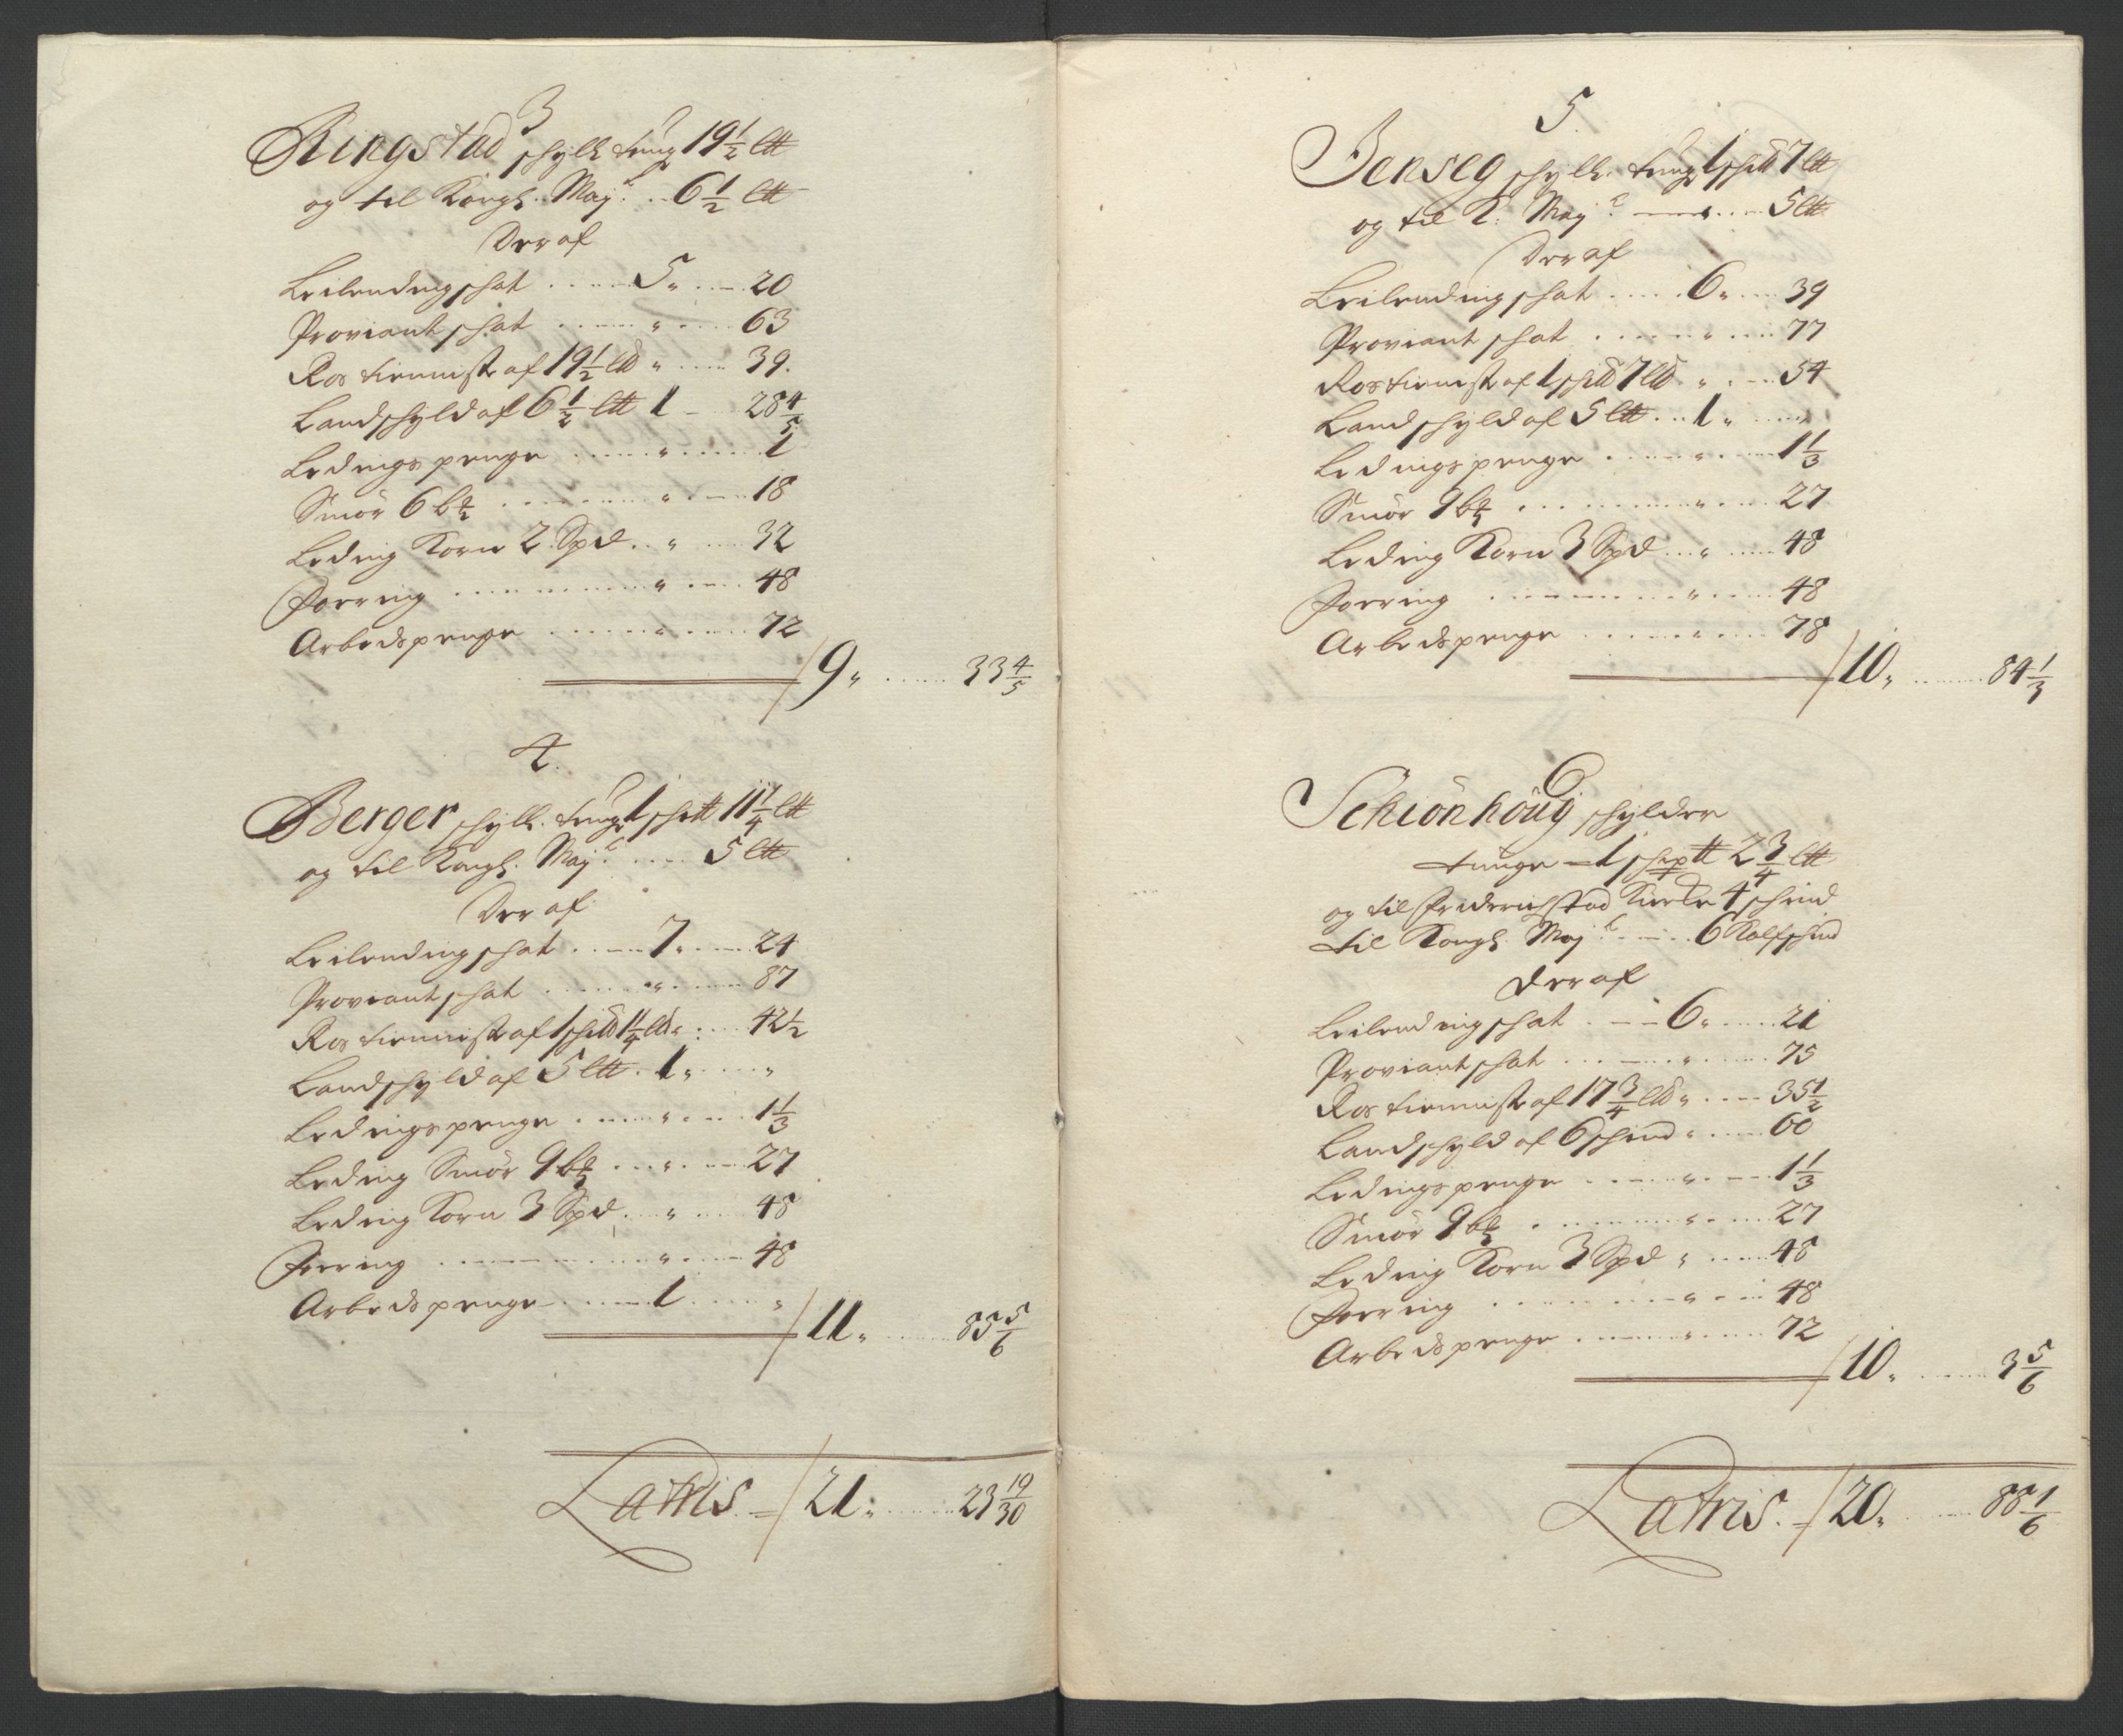 3
Ringstad schylld tunge 19 1/2 ltt
og til Kongl. Maytt .. 6 1/2 ltt
Der af
Leilending schat ..... 5 " ... 20
Proviant schat ..... " .... 63
Ros tienniste af 19 1/2 ltt " .... 39.
Landschyld af 6 1/2 ltt 1 - 28 4/5
Ledings penge ..... " ..... 1
Smör 6 bd ..... " .... 18
Leding Korn 2 Spd .. " .... 32
Foering ..... " .... 48
Arbeds penge ..... " .... 72
/ 9 " ..... 33 4/5
4.
Berger schyll. tunge 1 schtt 11 1/4 ltt
og til Kongl. Maytt ..... 5 ltt
Der af
Leilending schat ..... 7 " .... 24
Proviant schat ..... " .... 87
Ros tienniste af 1 schtt 1 1/4 ltt " ... 42 1/2
Landschyld af 5 ltt . 1 " .... "
Ledings penge ..... " .... 1 1/3
Leding Smör 9 bd .... " .... 27
Leding Korn 3 Spd .. " .... 48
Foering ..... " .... 48
Arbeds penge ..... 1 .... "
/ 11 " ..... 85 5/6
Latris / 21 " ..... 23 19/30
5.
Jenseg schyll. tunge 1 schtt 7 ltt
og til K. Maytt ..... 5 ltt
Der af
Leilending schat ..... 6 " .... 39
Proviant schat ..... " .... 77
Ros tienist af 1 schtt 7 ltt " .... 54
Landschyld af 5 ltt .. 1 " .... "
Ledings penge ..... " .... 1 1/3
Smör 9 bd ..... " .... 27
Leding Korn 3 Spd ... " .... 48
Foering ..... " .... 48
Arbeds penge ..... " .... 78
/ 10 " ..... 84 1/3
6
Schiönhöug schylder
tunge - 1 scheptt 2 3/4 ltt
og til Friderichstad Kircke 4 schind
til Kongl. Maytt ..... 6 Kalfschind
Der af
Leilending schat ..... 6 " .... 21
Proviant schat ..... " .... 75
Ros tienniste af 17 3/4 ltt " .... 35 1/2
Landschyld af 6 schind " .... 60
Ledings penge ..... " .... 1 1/3
Smör 9 bd ..... " .... 27
Leding Korn 3 Spd " .... 48
Foering ..... " .... 48
Arbeds penge ..... " .... 72
/ 10 " ..... 3 5/6
Latris. / 20 " ..... 88 1/6